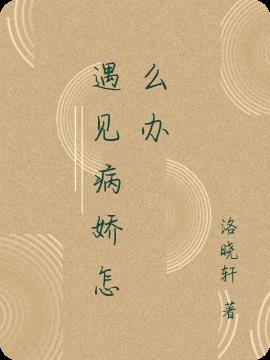 遇见病娇怎
么办
洛晓轩 著